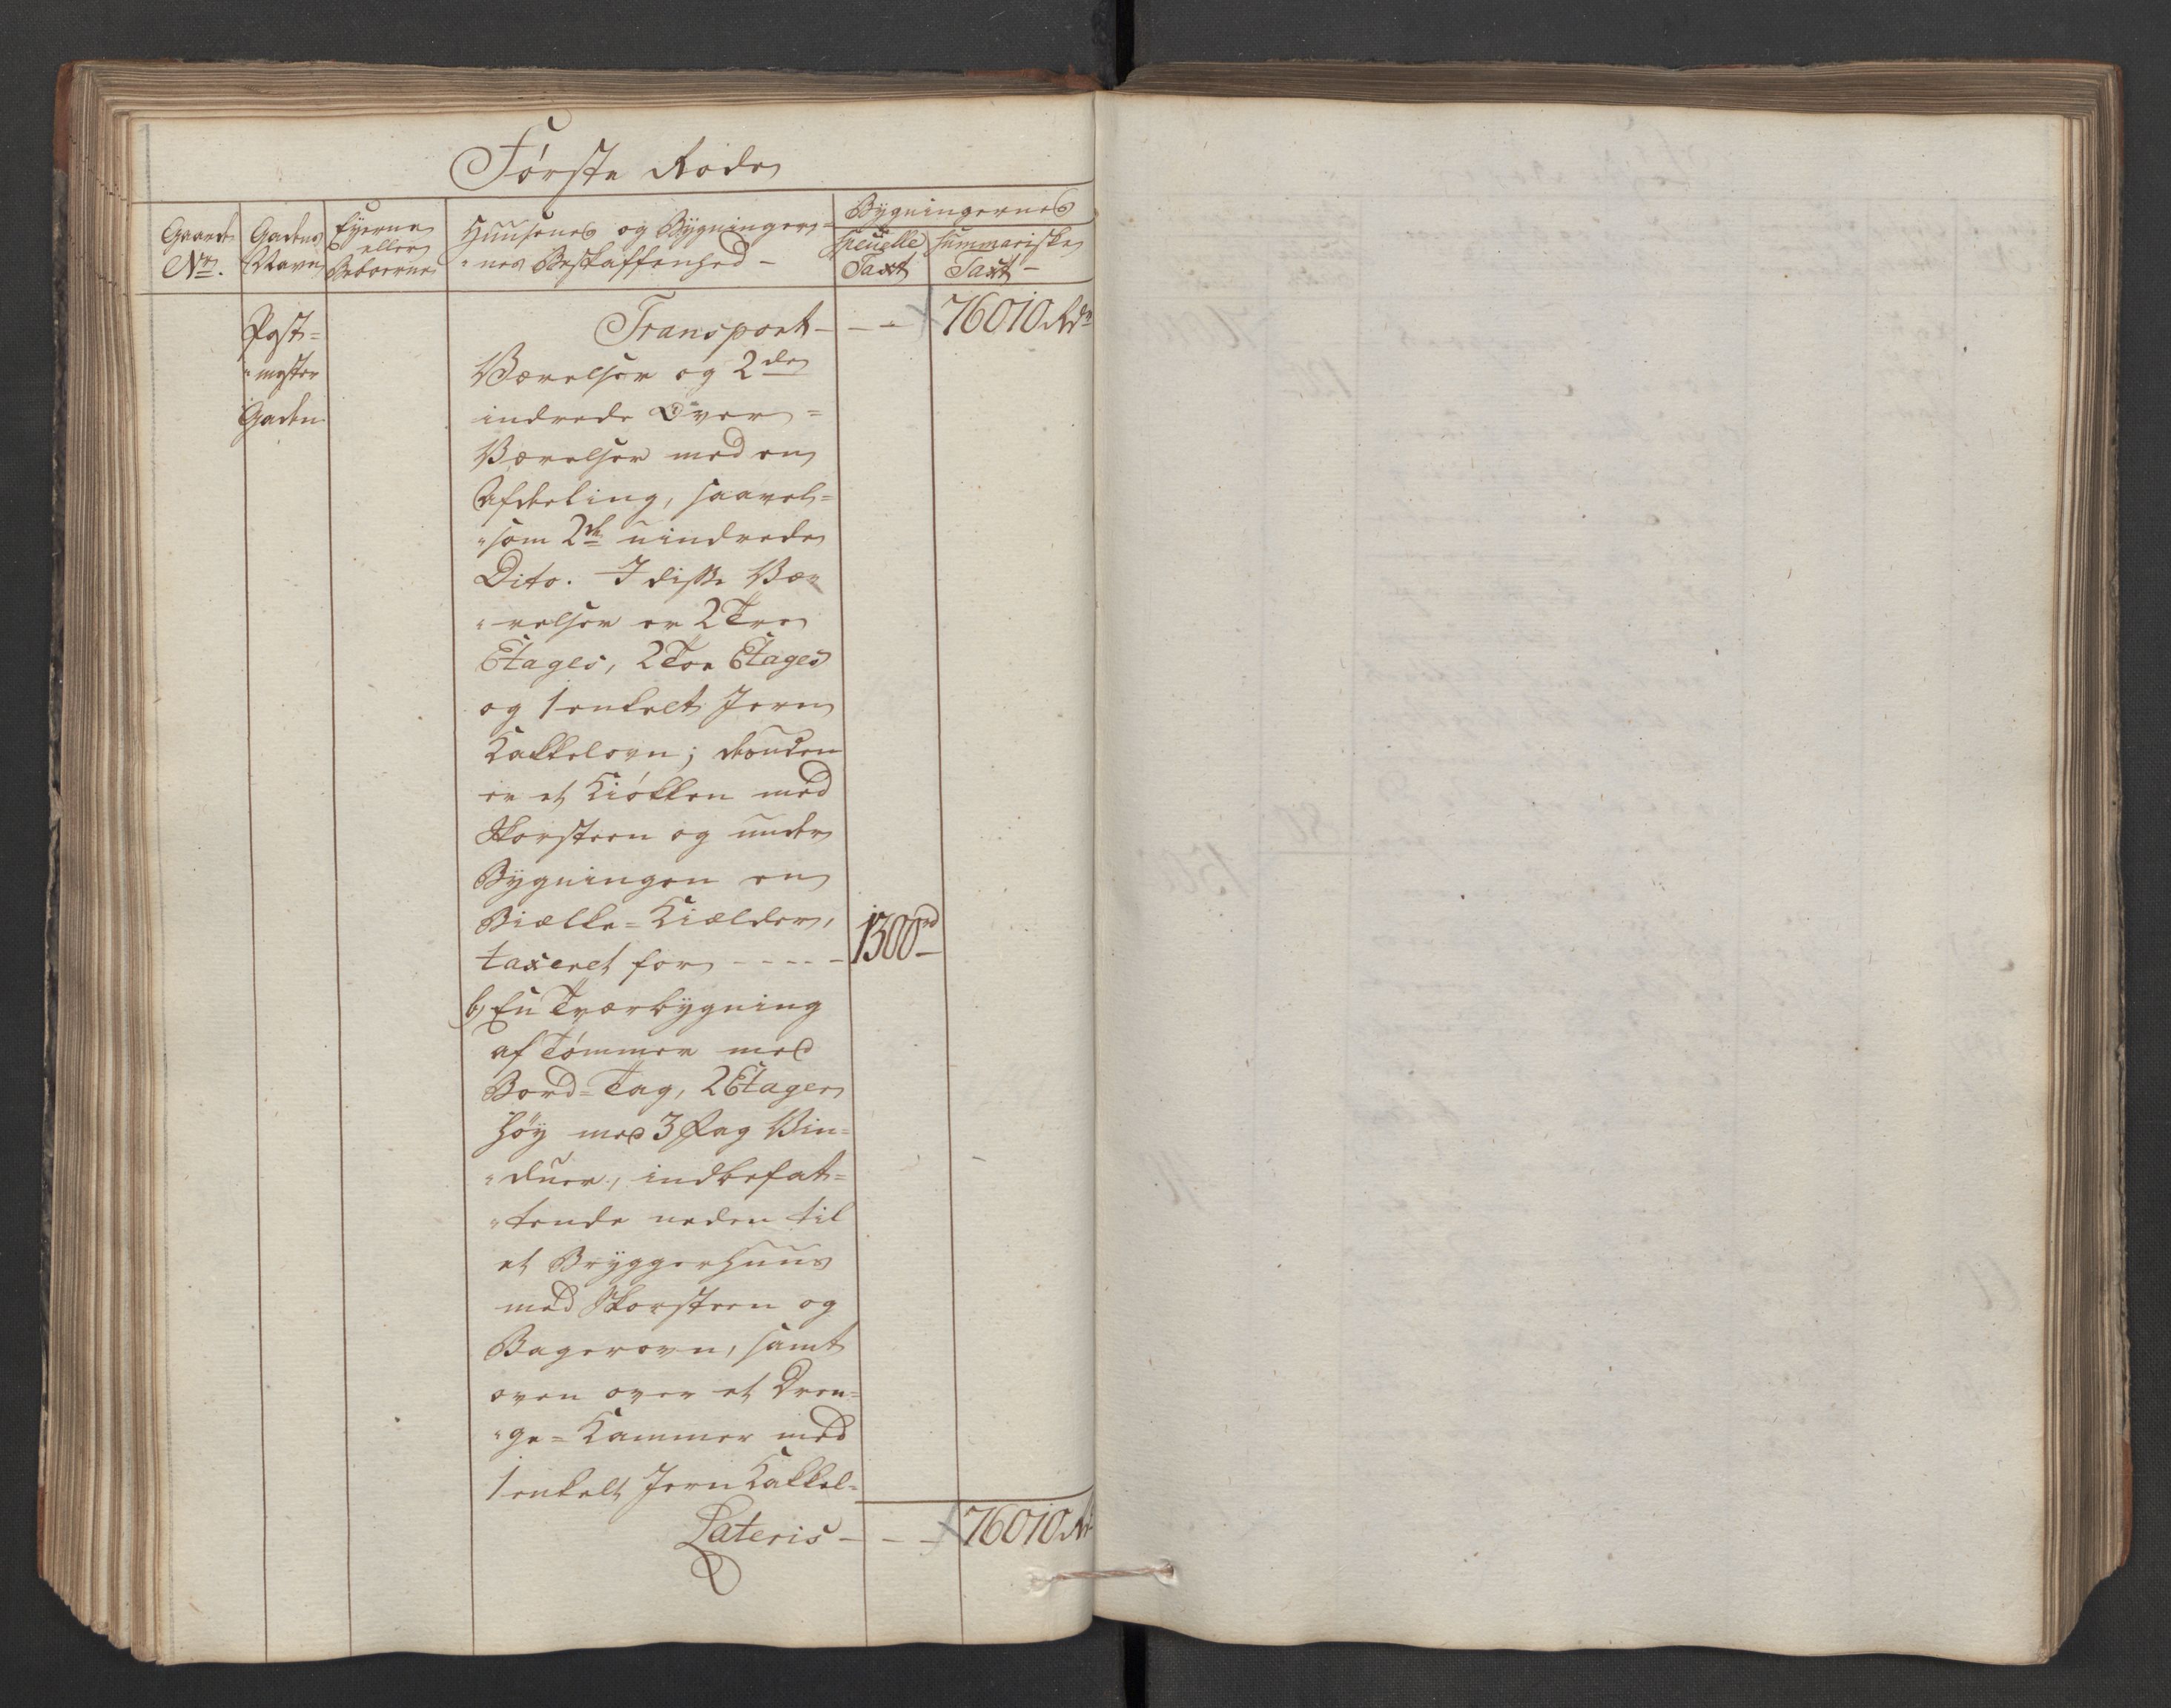 Første Rode
Gaards No.
Gadens Navn
Eyerne eller Beboerne
Huusenes og Bygninger=
nes Beskaffenhed -
Bygningernes
specielle Taxt
summariske Taxt -
Post=
mester
Gaden
Transport - - - 76010 Rdr
Værelser og 2de
indrede Over=
Værelser med en
Afdeling, saavel=
som 2de uindrede
Dito. I disse Væ
relser er 2 Tre
Etages, 2 Toe Etages
og 1 enkelt Jern
Kakkelovn; desuden
er et Kiøkken med
Skorsteen og under
Bygningen en
Bielke=Kielder,
taxeret for - - - - - 1300rd
b, En Tværbygning
af Tømmer med
Bord=Tag, 2 Etager
høy med 3 Fag Vin=
duer, indbefat=
tende neden til
et Bryggerhuus
med Skorsteen og
Bagerovn, samt
oven over et Dren=
ge=Kammer med
1 enkelt Jern Kakkel=
Lateris - - - 76010 Rd